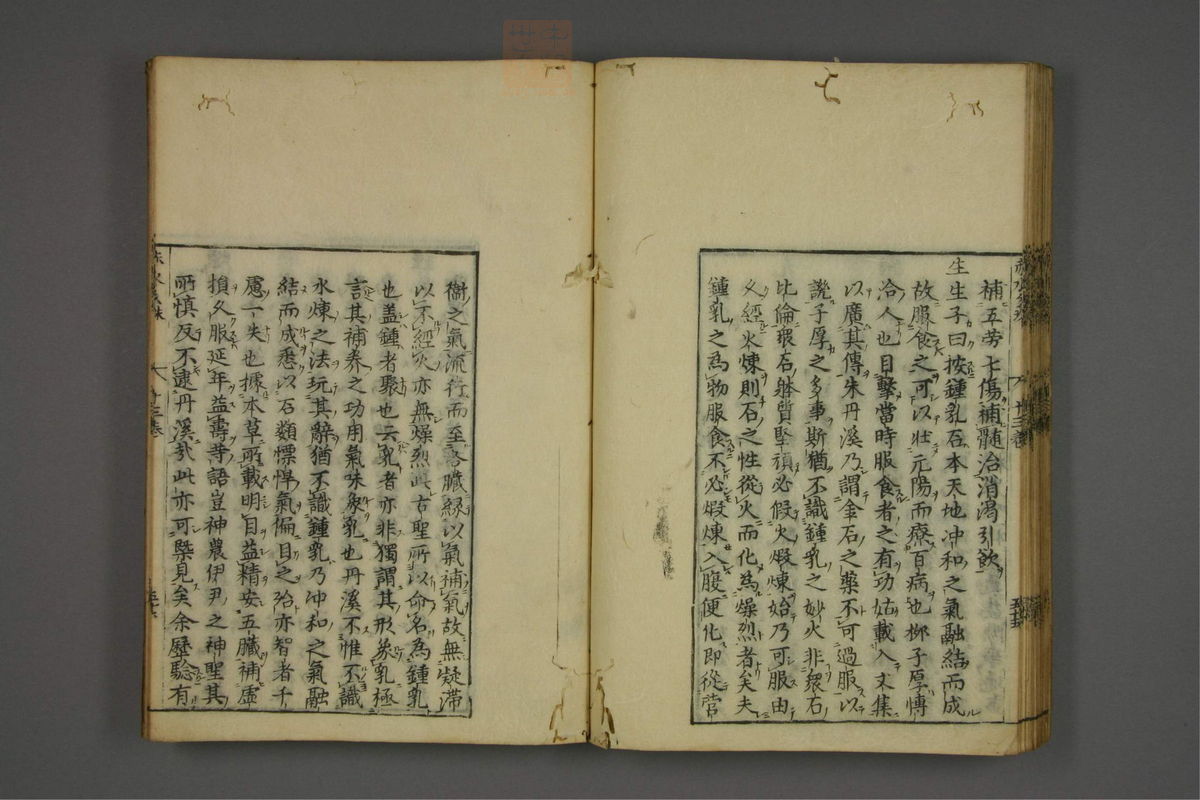 補五労七傷補髄治消渇引飲
生生子曰按鍾乳石本天地冲和之氣融結而成
故服食之可以壯元陽而療百病也柳子厚慱
洽人也目擊當時服食者之有功姑載入文集
以廣其傳朱丹溪乃謂金石之藥不可過服以
譏子厚之多事斯猶不識鍾乳之妙火非衆石
比倫衆石躰質堅頑必假火煅煉始乃可服由
久經火煉則石之性從火而化為燥烈者矣夫
鍾乳之為物服食不必煅煉入腹便化即從營
衞之氣流行而至各臟縁以氣補氣故無凝滯
以不經火亦無燥烈此古聖所以命名為鍾乳
也盖鍾者聚也云乳者亦非獨謂其形象乳極
言其補養之功用氣味象乳也丹溪不惟不識
水煉之法玩其辭猶不識鍾乳乃冲和之氣融
結而成悉以石類慓悍氣偏目之殆亦智者千
慮一失也據本草所載明目益精安五臓補虚
損久服延年益壽等語豈神農伊尹之神聖其
所慎反不逮丹溪㢤此亦可槩見矣余歴驗有
十三卷